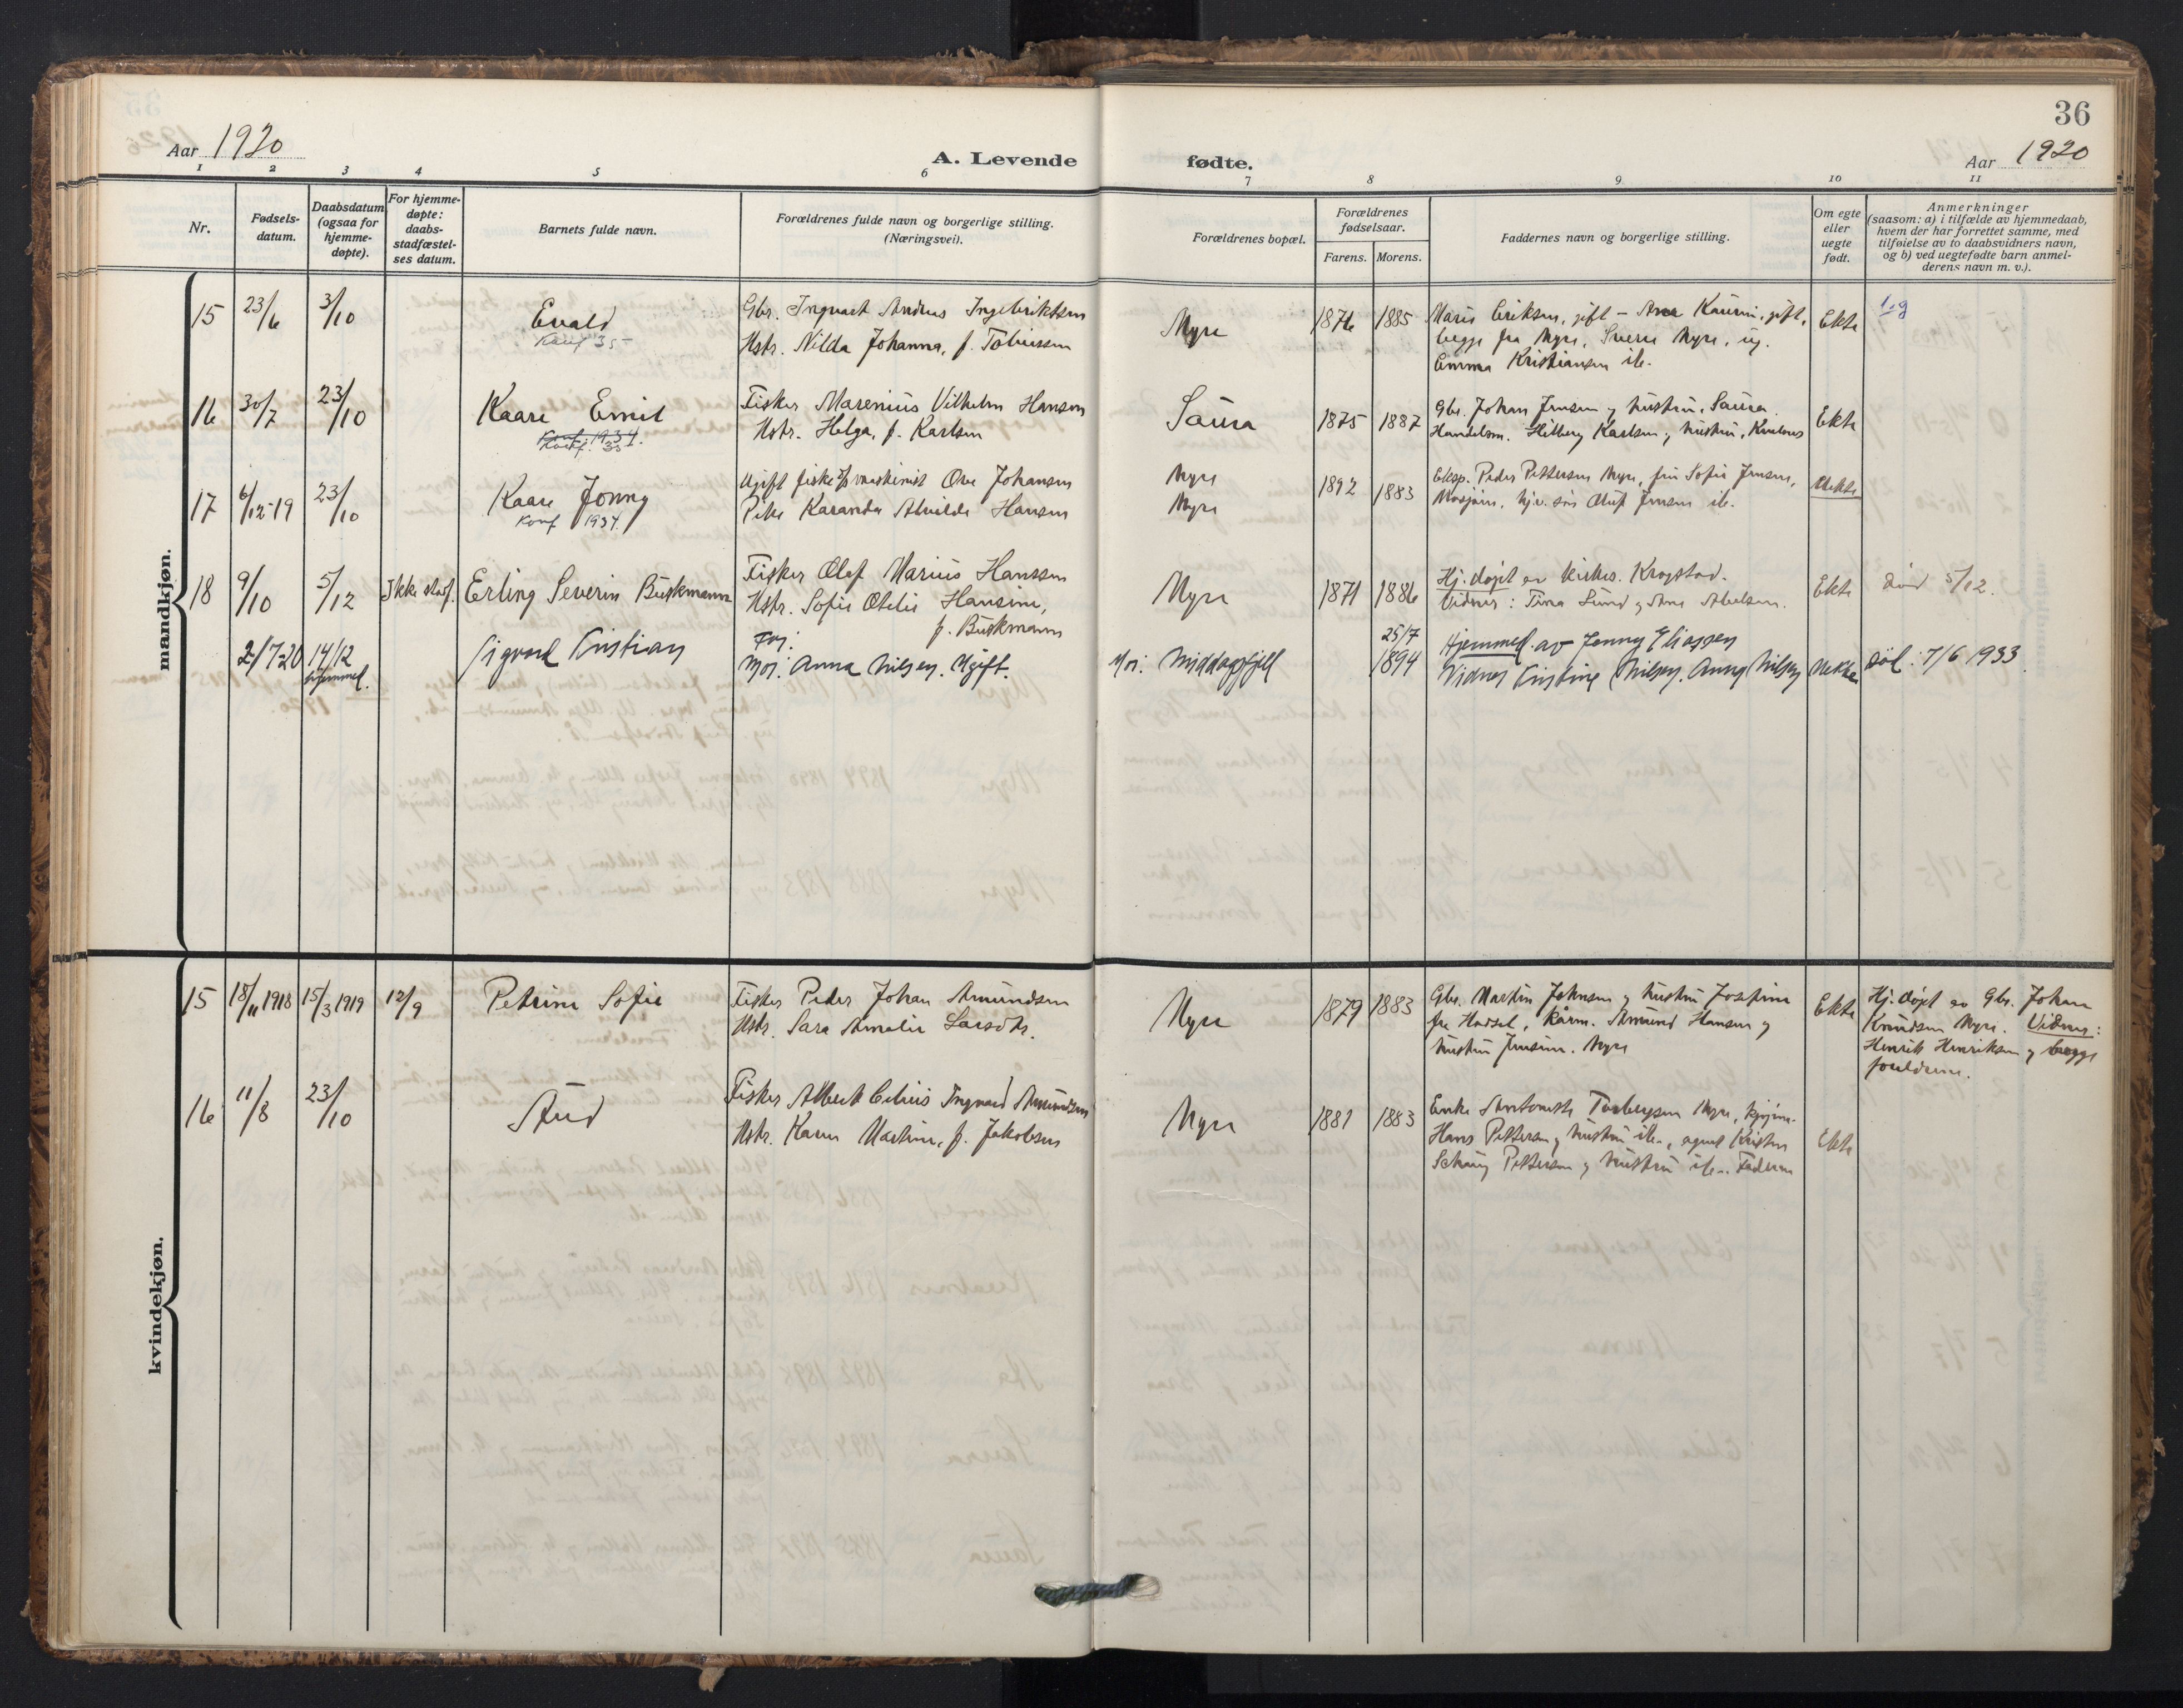 36
Aar 1920
A. Levende fødte.
Aar 1920
1 2 3 4 5 6 7 8 9 10 11
Nr.
Fødsels-
datum.
Daabsdatum
(ogsaa for
hjemme-
døpte).
For hjemme-
døpte:
daabs-
stadfæstel-
ses datum.
Barnets fulde navn.
Forældrenes fulde navn og borgerlige stilling.
(Næringsvei).
Forældrenes bopæl.
Forældrenes
fødselsaar.
Farens. Morens.
Faddernes navn og borgerlige stilling.
Om egte
eller
uegte
født.
Anmerkninger
(saasom: a) i tilfælde av hjemmedaab,
hvem der har forrettet samme, med
tilføielse av to daabsvidners navn,
og b) ved uegtefødte barn anmel-
derens navn m. v.).
mandkjøn.
15 23/6 3/10 Evald
Konf 35
Gbr. Ingvart Andreas Ingebriktsen
Hstr. Nilda Johanna, f. Tobiassen
Myre 1876 1885
Maris Eriksen, gift - Anna Kaurin, gift,
begge fra Myre, Sverre Myre, ug.
Emma Kristiansen ib.
Ekte
16 30/7 23/10 Kaare Emil
Konf. 1934.
Konf. 35
Fisker Marenius Vilhelm Hansen
Hstr. Helga, f. Karlsen
Saura 1875 1887
Gbr. Johan Jensen og hustru, Saura.
Handelsm. Hilberg Karlsen og hustru, Kvalnes
Ekte
17 6/12-19 23/10 Kaare Jonny
Konf 1934.
Ugift fisker og maskinist Ove Johansen
Pike Karanda Alvilde Hansen
Myre
Myre
1892 1883
Eksp. Peder Pettersen Myre, fru Sofie Jensen,
Mosjøen, hjv. søn Oluf Jensen ib.
Uekte
18 9/10 5/12 Ikke stadf. Erling Severin Buskmann
Fisker Olaf Marius Hanssen
Hstr. Sofie Otelie Hansine,
f. Buskmann
Myre 1871 1886
Hj. døpt av kirkes. Krogstad.
Vidner: Tina Lund og Ana Abelsen.
Ekte død 5/12.
2/7-20 14/12
hjemmed.
Sigvard Kristian
Far:
Mor: Anna Nilsen. Ugift.
Mor: Middagsfjell
25/7
1894
Hjemmed. av Jenny Eliassen
Vidner Kristine Nilsen. Anna Nilsen
Uekte døl: 7/6 1933.
kvindekjøn.
15 18/11 1918 15/3 1919 12/9 Petrine Sofie
Fisker Peder Johan Amundsen
Hstr. Sara Amalie Larsdtr.
Myre 1879 1883
Gbr. Martin Johnsen og hustru Josefine
fra Hadsel, Kårm. Amund Hansen og
hustru Jensine. Myre
Ekte
Hj. døpt av Gbr. Johan
Knudsen Myre. Vidner:
Henrik Henriksen og begge
forældrene.
16 11/8 23/10 Aud
Fisker Albert Celius Ingvard Amundsen
Hstr. Karen Martine, f. Jakobsen
Myre 1881 1883
Enke Antonette Torbergsen Myre,
Hans Pettersen og hustru ib., Kristen
Schøug Pettersen og hustru ib. Faderen
Ekte